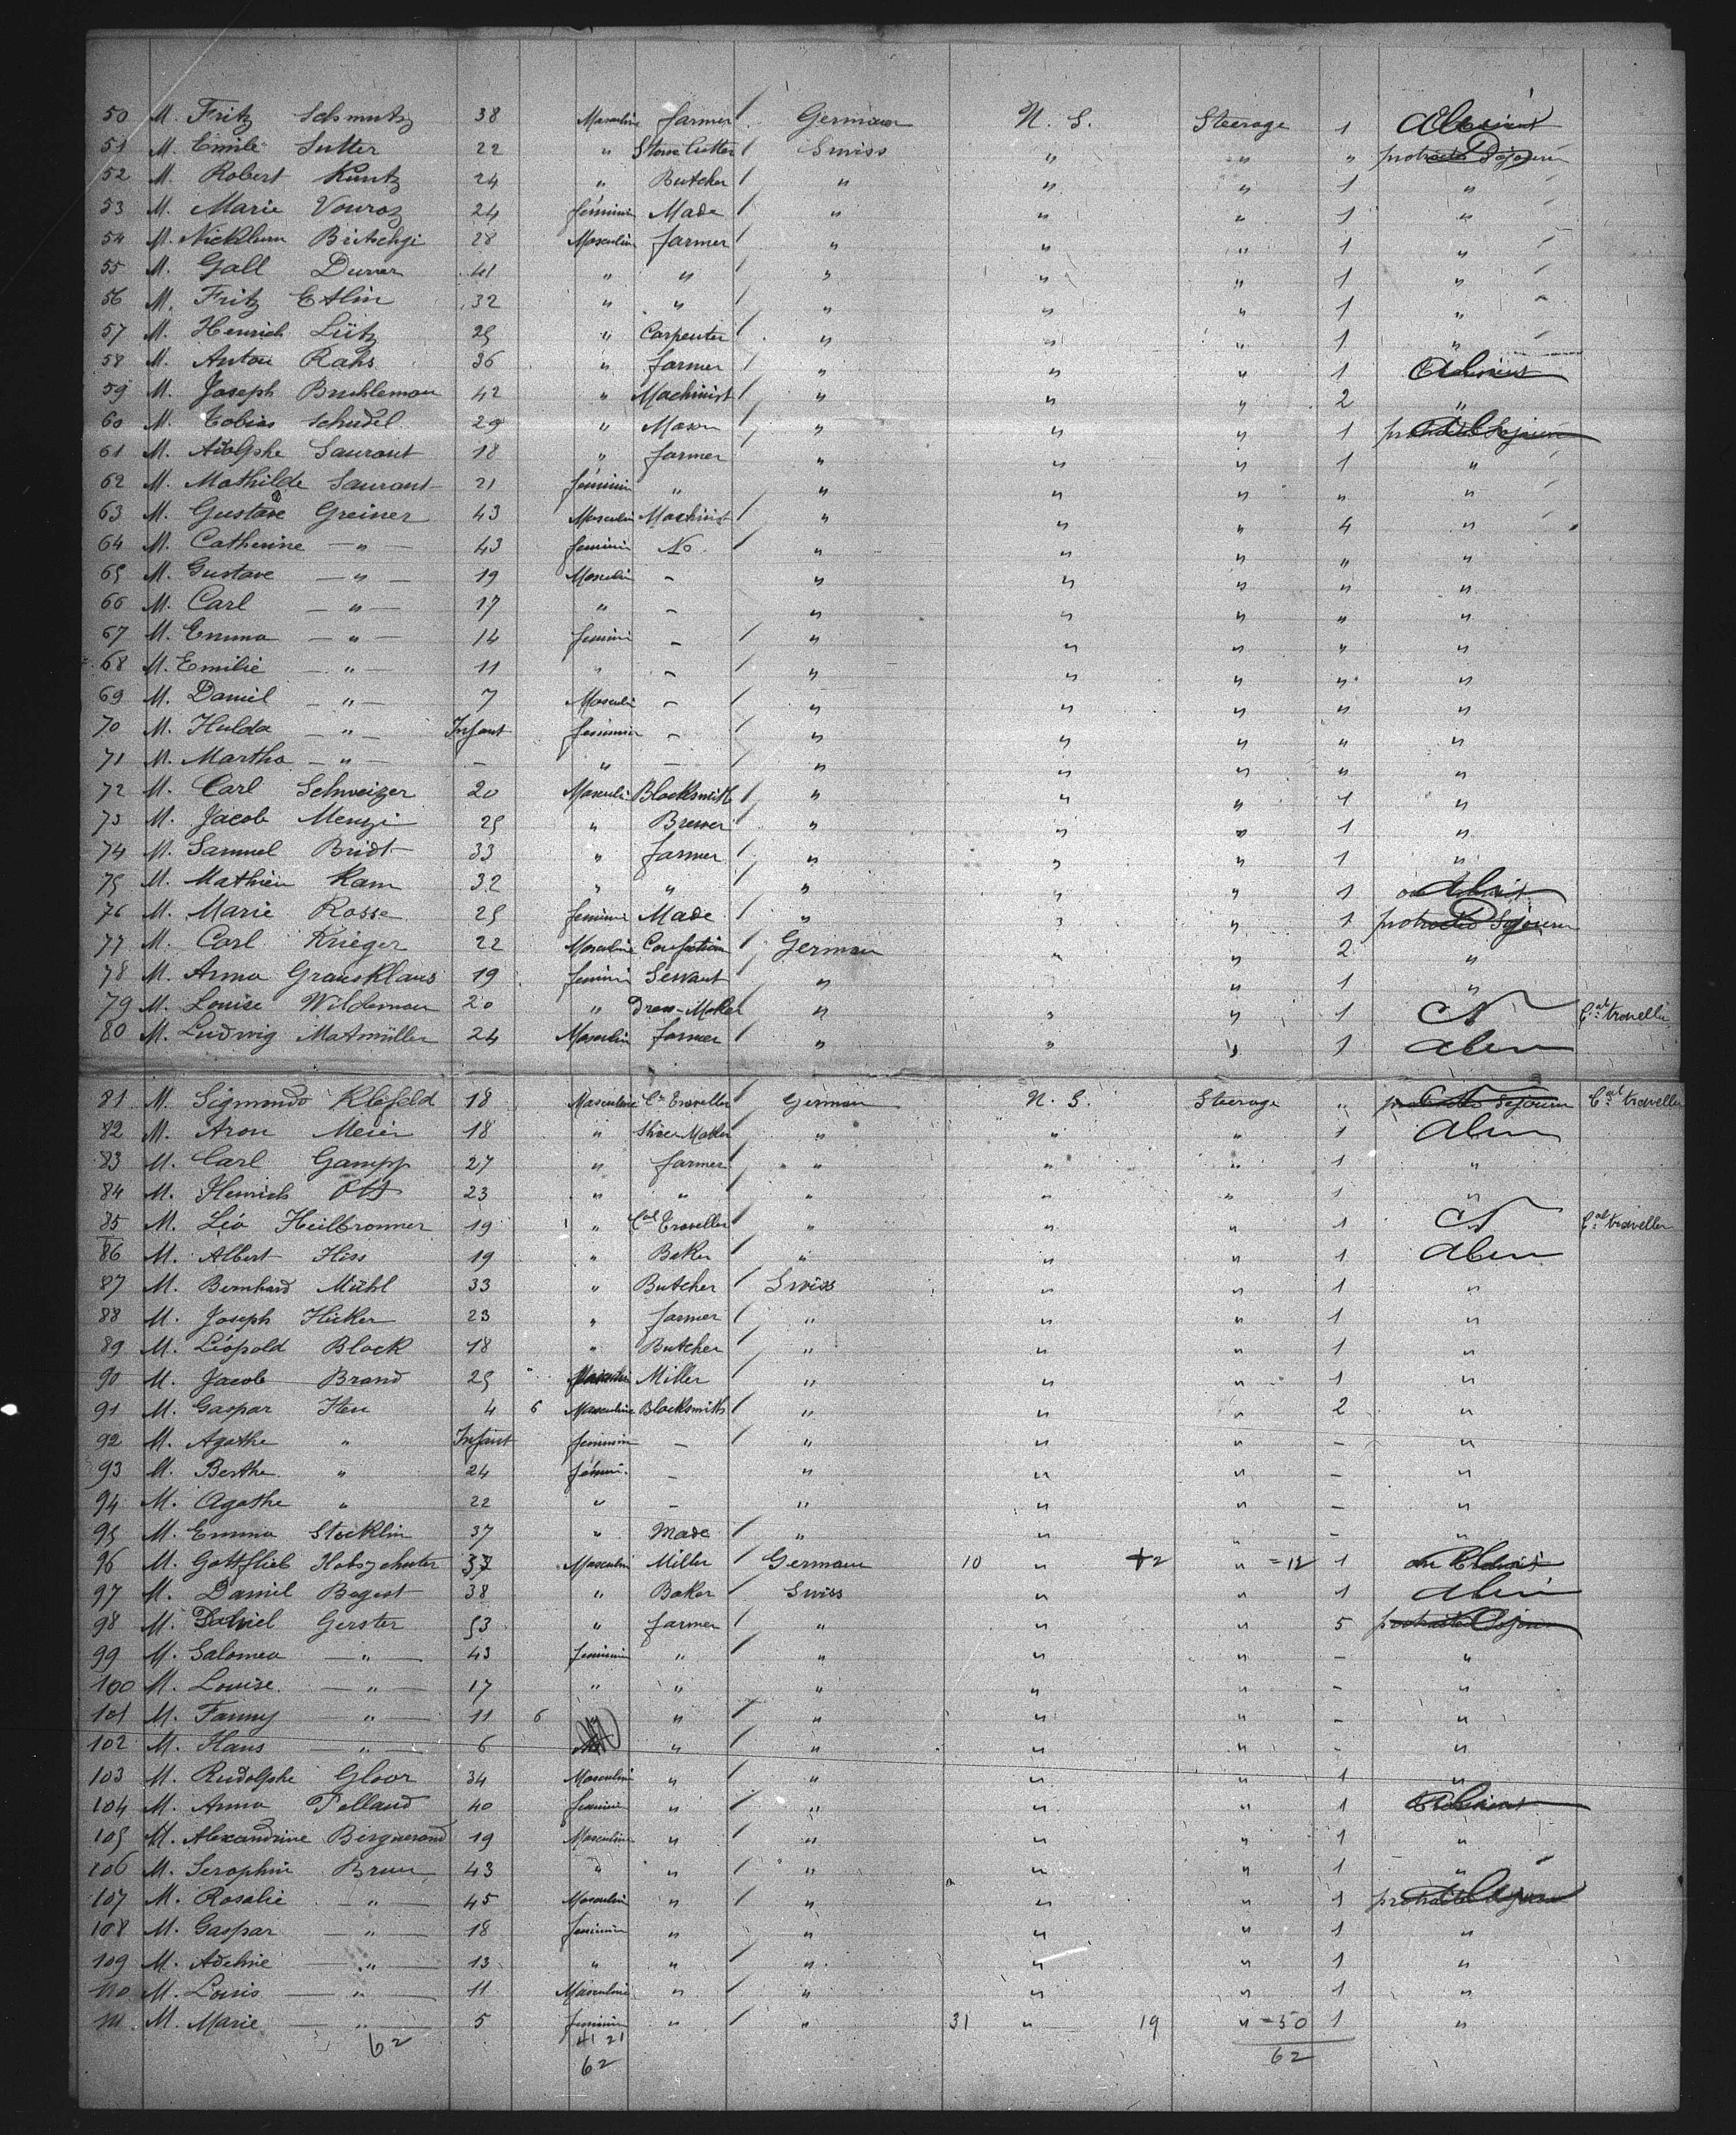 50 M. Fritz Schmutz 38 Masculine farmer German N. S. Steerage 1
51 M. Emile Sutter 22 " Stone Cutter Swiss " " " protracted Sojourn
52 M. Robert Kuntz 24 " Butcher " " " 1 "
53 M. Marie Vouroz 24 féminin Made " " " 1 "
54 M. Nicklum Britschgi 28 Masculin farmer " " " 1 "
55 M. Gall Durrer 41 " " " " " 1 "
56 M. Fritz Etlin 32 " " " " " 1 "
57 M. Henrich Lütz 25 " Carpenter " " " 1 "
58 M. Anton Rahs 36 " farmer " " " 1
59 M. Joseph Bruhleman 42 " Machinist " " " 2 "
60 M. Tobias Schudel 29 " Mason " " " 1 protracted Sojourn
61 M. Adolphe Saurant 18 " farmer " " " 1 "
62 M. Mathilde Saurant 21 féminin " " " " " "
63 M. Gustave Greiner 43 Masculin Machinist " " " 4 "
64 M. Catherine — " — 43 feminin No " " " " "
65 M. Gustave — " — 19 Masculin - " " " " "
66 M. Carl — " — 17 " - " " " " "
67 M. Emma — " — 14 feminin - " " " " "
68 M. Emilie — " — 11 " - " " " " "
69 M. Daniel — " — 7 Masculin - " " " " "
70 M. Hulda — " — Infant feminin - " " " " "
71 M. Martha — " — - " - " " " " "
72 M. Carl Schweizer 20 Masculin Blacksmith " " " 1 "
73 M. Jacob Menzi 25 " Brewer " " " 1 "
74 M. Samuel Bridt 33 " farmer " " " 1 "
75 M. Mathieu Kam 32 " " " " " 1
76 M. Marie Rosse 25 feminin Made " " " 1 protracted Sojourn
77 M. Carl Krieger 22 Masculine German " " 2 "
78 M. Anna Grausklaus 19 feminin Servant " " 1 "
79 M. Louise Wildeman 20 " Dress-Maker " " " 1 Cal traveller
80 M. Ludwig Matmüller 24 Masculin farmer " " " 1
81 M. Sigmondo Klefeld 18 Masculine Cal Traveller German N. S. Steerage " protracted Sojourn Cal traveller
82 M. Aron Meier 18 " Shoe Maker " " " 1
83 M. Carl Gampp 27 " farmer " " " 1 "
84 M. Henrich Ott 23 " " " " " 1 "
85 M. Léo Heilbronner 19 " Cal Traveller " " " 1 Cal traveller
86 M. Albert Hiss 19 " Baker " " " 1
87 M. Bernhard Mühl 33 " Butcher Swiss " " 1 "
88 M. Joseph Hicker 23 " farmer " " " 1 "
89 M. Léopold Block 18 " Butcher " " " 1 "
90 M. Jacob Brand 25 " Miller " " " 1 "
91 M. Gaspar Heu 4 6 Masculine Blacksmith " " " 2 "
92 M. Agathe " Infant feminin - " " " - "
93 M. Berthe " 24 fémin. - " " " - "
94 M. Agathe " 22 " - " " " - "
95 M. Emma Stocklin 37 " Made " " " - "
96 M. Gottflieb 37 Masculin Miller German 10 " 2 " =12 1
97 M. Daniel Begert 38 " Baker Swiss " " 1
98 M. Gerster 53 " farmer " " " 5 protracted Sojourn
99 M. Salomea — " — 43 feminin " " " " - "
100 M. Louise — " — 17 " " " " " - "
101 M. Fanny — " — 11 6 " " " " - "
102 M. Hans — " — 6 " " " " - "
103 M. Rudolphe Gloor 34 Masculin " " " " 1 "
104 M. Anna Pelland 40 feminin " " " " 1
105 M. Alexandrine Berguerand 19 Masculine " " " " 1 "
106 M. Seraphin Brun 43 " " " " " 1 "
107 M. Rosalie — " — 45 Masculin " " " " 1
108 M. Gaspar — " — 18 feminin " " " " 1 "
109 M. Adeline — " — 13 " " " " " 1 "
110 M. Louis — " — 11 Masculine " " " " 1 "
111 M. Marie — " — 5 feminin " " 31 " 19 " =50 1 "
62 41 21 62
62